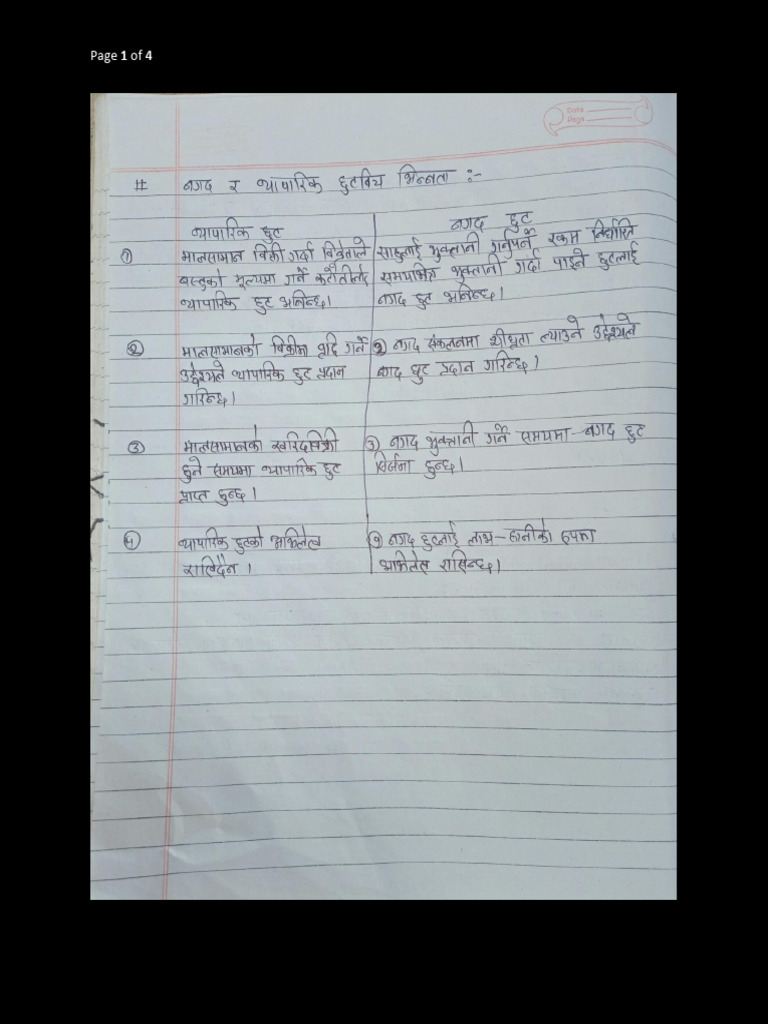 Page 1 of 4
Date
Page
# नगद र व्यापारिक छुटबिच भिन्नता :-
व्यापारिक छुट
① मालसामान बिक्री गर्दा बिक्रेताले
बस्तुको मूल्यमा गर्ने कटौतीलाई
व्यापारिक छुट भनिन्छ।
नगद छुट
साहुलाई भुक्तानी गर्नुपर्ने रकम निर्धारित
समयभित्र भुक्तानी गर्दा पाइने छुटलाई
नगद छुट भनिन्छ।
② मालसामानको बिक्रीमा वृद्दि गर्ने
उद्देश्यले व्यापारिक छुट प्रदान
गरिन्छ।
२ नगद संकलनमा शीघ्रता ल्याउने उद्देश्यले
नगद छुट प्रदान गरिन्छ।
③ मालसामानको खरिदबिक्री
हुने समयमा व्यापारिक छुट
प्राप्त हुन्छ।
३ नगद भुक्तानी गर्ने समयमा नगद छुट
सिर्जना हुन्छ।
④ व्यापारिक छुटको अभिलेख
राखिदैन।
नगद छुटलाई लाभ-हानीको रुपमा
अभिलेख राखिन्छ।